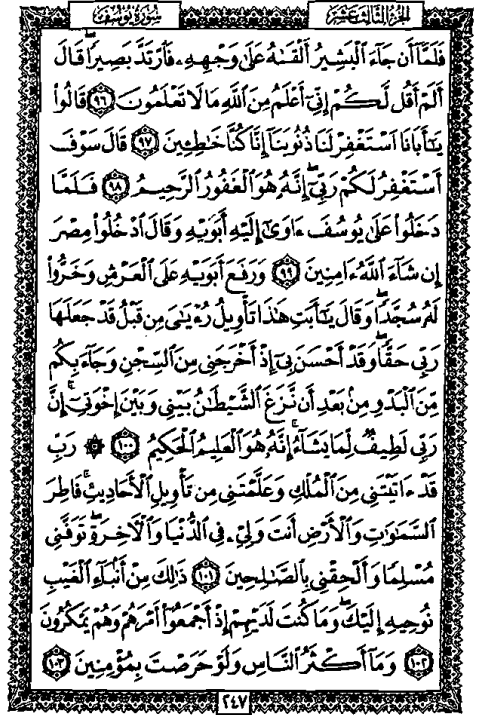 الجزء الثالث عشر
سورة يوسف
فَلَمَّآ أَن جَآءَ ٱلۡبَشِيرُ أَلۡقَىٰهُ عَلَىٰ وَجۡهِهِۦ فَٱرۡتَدَّ بَصِيرٗاۖ قَالَ
أَلَمۡ أَقُل لَّكُمۡ إِنِّيٓ أَعۡلَمُ مِنَ ٱللَّهِ مَا لَا تَعۡلَمُونَ ٩٦ قَالُواْ
يَٰٓأَبَانَا ٱسۡتَغۡفِرۡ لَنَا ذُنُوبَنَآ إِنَّا كُنَّا خَٰطِـِٔينَ ٩٧ قَالَ سَوۡفَ
أَسۡتَغۡفِرُ لَكُمۡ رَبِّيٓۖ إِنَّهُۥ هُوَ ٱلۡغَفُورُ ٱلرَّحِيمُ ٩٨ فَلَمَّا
دَخَلُواْ عَلَىٰ يُوسُفَ ءَاوَىٰٓ إِلَيۡهِ أَبَوَيۡهِ وَقَالَ ٱدۡخُلُواْ مِصۡرَ
إِن شَآءَ ٱللَّهُ ءَامِنِينَ ٩٩ وَرَفَعَ أَبَوَيۡهِ عَلَى ٱلۡعَرۡشِ وَخَرُّواْ
لَهُۥ سُجَّدٗاۖ وَقَالَ يَٰٓأَبَتِ هَٰذَا تَأۡوِيلُ رُءۡيَٰيَ مِن قَبۡلُ قَدۡ جَعَلَهَا
رَبِّي حَقّٗاۖ وَقَدۡ أَحۡسَنَ بِيٓ إِذۡ أَخۡرَجَنِي مِنَ ٱلسِّجۡنِ وَجَآءَ بِكُم
مِّنَ ٱلۡبَدۡوِ مِنۢ بَعۡدِ أَن نَّزَغَ ٱلشَّيۡطَٰنُ بَيۡنِي وَبَيۡنَ إِخۡوَتِيٓۚ إِنَّ
رَبِّي لَطِيفٞ لِّمَا يَشَآءُۚ إِنَّهُۥ هُوَ ٱلۡعَلِيمُ ٱلۡحَكِيمُ ١٠٠ ۞ رَبِّ
قَدۡ ءَاتَيۡتَنِي مِنَ ٱلۡمُلۡكِ وَعَلَّمۡتَنِي مِن تَأۡوِيلِ ٱلۡأَحَادِيثِۚ فَاطِرَ
ٱلسَّمَٰوَٰتِ وَٱلۡأَرۡضِ أَنتَ وَلِيِّۦ فِي ٱلدُّنۡيَا وَٱلۡأٓخِرَةِۖ تَوَفَّنِي
مُسۡلِمٗا وَأَلۡحِقۡنِي بِٱلصَّٰلِحِينَ ١٠١ ذَٰلِكَ مِنۡ أَنۢبَآءِ ٱلۡغَيۡبِ
نُوحِيهِ إِلَيۡكَۖ وَمَا كُنتَ لَدَيۡهِمۡ إِذۡ أَجۡمَعُوٓاْ أَمۡرَهُمۡ وَهُمۡ يَمۡكُرُونَ
١٠٢ وَمَآ أَكۡثَرُ ٱلنَّاسِ وَلَوۡ حَرَصۡتَ بِمُؤۡمِنِينَ ١٠٣
٢٤٧